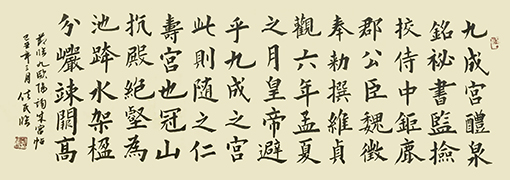 九成宮醴泉
銘秘書監撿
挍侍中鉅鹿
郡公臣魏徵
奉勑撰維貞
觀六年孟夏
之月皇帝避
乎九成之宮
此則隨之仁
壽宮也冠山
抗殿絕壑為
池跨水架楹
分巖竦闕高